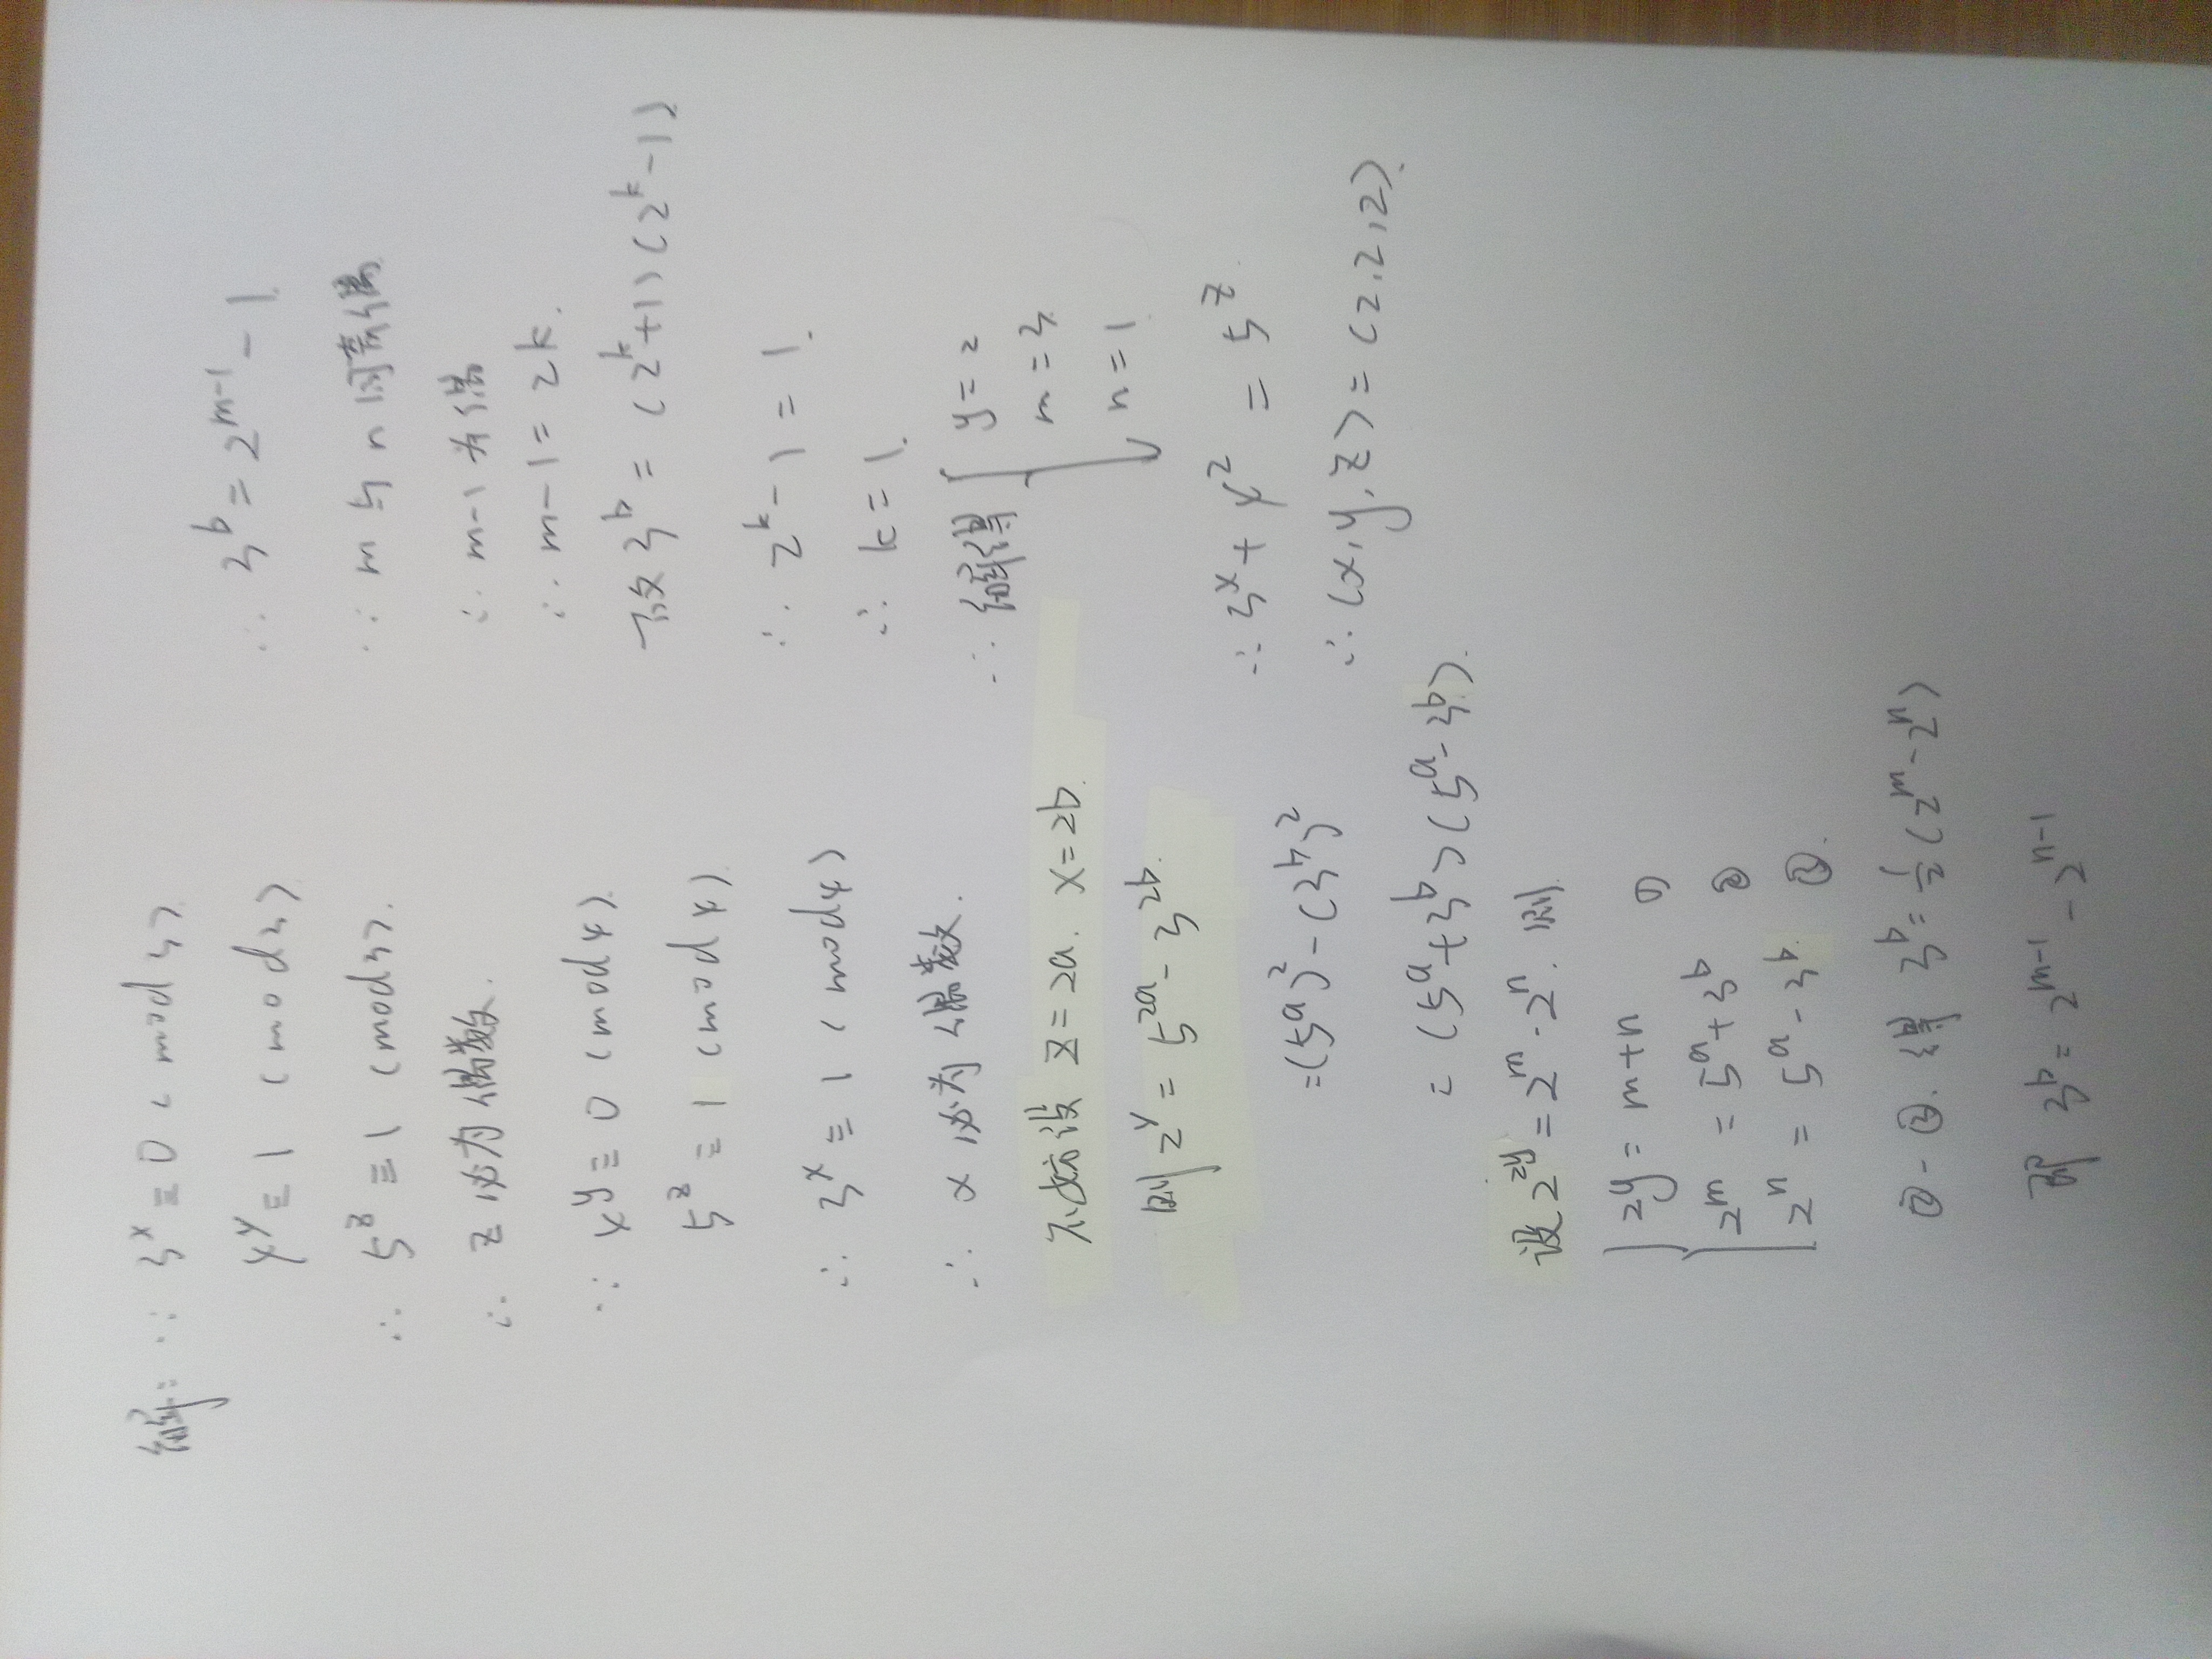 解: ∵ 3^x ≡ 0 (mod 3)
4^y ≡ 1 (mod 3)
∴ 5^z ≡ 1 (mod 3).
∴ z 必为偶数.
∵ 4^y ≡ 0 (mod 4)
5^z ≡ 1 (mod 4)
∴ 3^x ≡ 1 (mod 4)
∴ x 必为偶数.
不妨设 z = 2a. x = 2b.
则 2^y = 5^{2a} - 3^{2b}.
= (5^a)^2 - (3^b)^2
= (5^a + 3^b)(5^a - 3^b).
设 2^{2y} = 2^m · 2^n. 则
2y = m + n ①
2^m = 5^a + 3^b ②
2^n = 5^a - 3^b ③.
② - ③. 得 3^b = 1/2 (2^m - 2^n)
即 3^b = 2^{m-1} - 2^{n-1}
∴ 3^b = 2^{m-1} - 1.
∵ m 与 n 同奇偶.
∴ m-1 为偶
∴ m-1 = 2k.
故 3^b = (2^k + 1)(2^k - 1)
∴ 2^k - 1 = 1.
∴ k = 1.
∴ 解得 { y = 2
m = 3
n = 1
∴ 3^x + 4^2 = 5^z.
∴ (x, y, z) = (2, 2, 2).